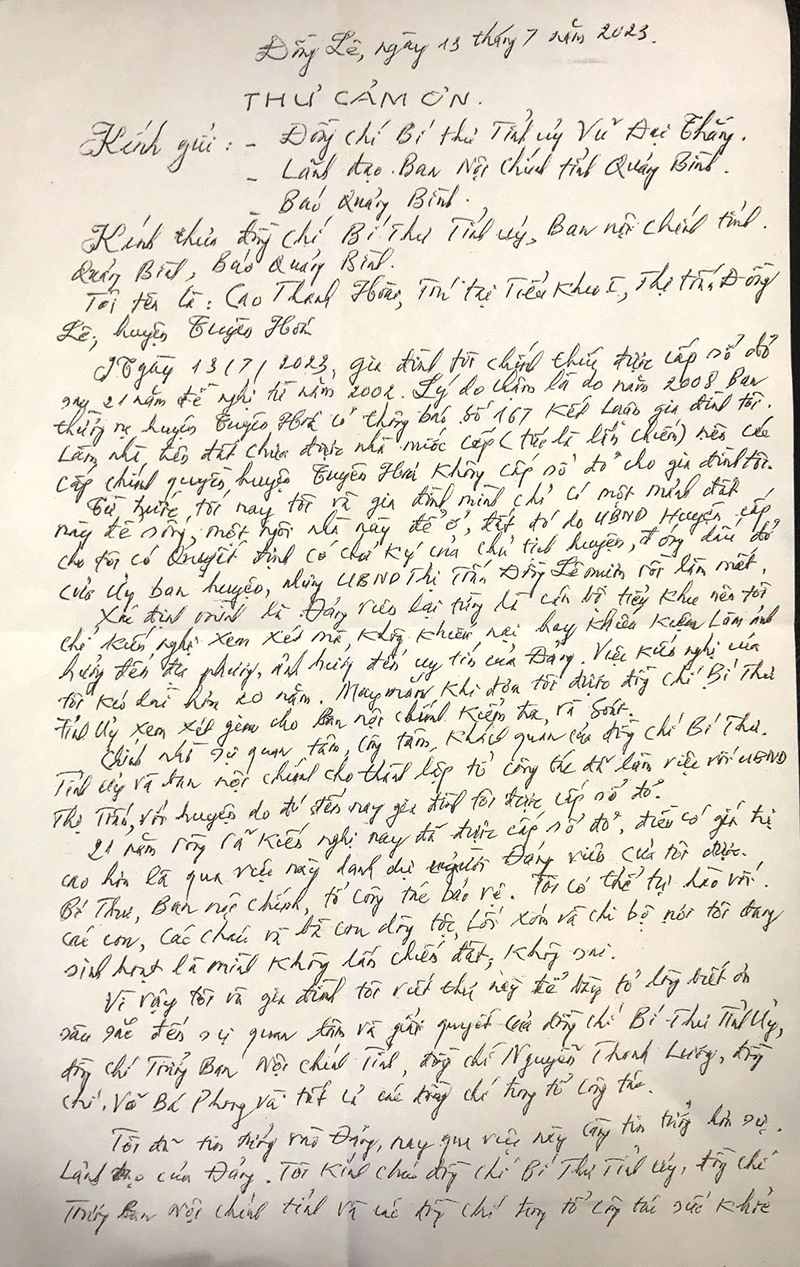 Đồng Lê, ngày 13 tháng 7 năm 2023.
THƯ CẢM ƠN.
Kính gửi: - Đồng chí Bí thư Tỉnh ủy Vũ Đại Thắng.
- Lãnh đạo Ban Nội chính tỉnh Quảng Bình.
- Báo Quảng Bình.
Kính thưa đồng chí Bí Thư Tỉnh ủy, Ban nội chính tỉnh.
Quảng Bình, Báo Quảng Bình.
Tôi tên là: Cao Thanh Hoàn, Trú tại Tiểu khu I, Thị trấn Đồng
Lê, huyện Tuyên Hoá
Ngày 13/7/2023, gia đình tôi chính thức được cấp sổ đỏ
sau 21 năm đề nghị từ năm 2002. Lý do chậm là do năm 2008 Ban
thường vụ huyện Tuyên Hoá có thông báo số 167 kết luận gia đình tôi.
Làm nhà trên đất chưa được nhà nước cấp (tức là lấn chiếm) nên các
cấp chính quyền huyện Tuyên Hoá không cấp sổ đỏ cho gia đình tôi.
Từ trước tới nay tôi và gia đình mình chỉ có một mảnh đất
này để sống, một ngôi nhà này để ở, đất đó do UBND Huyện cấp
cho tôi có Quyết định có chữ ký của chủ tịch huyện, đóng dấu đỏ
của ủy ban huyện, nhưng UBND Thị Trấn Đồng Lê mượn rồi làm mất.
Xác định mình là Đảng viên lại từng là cán bộ tiểu khu nên tôi
chỉ kiến nghị xem xét mà không khiếu nại hay khiếu kiện làm ảnh
hưởng đến địa phương, ảnh hưởng đến uy tín của Đảng. Việc kiến nghị của
tôi kéo dài hơn 20 năm. May mắn khi đơn tôi được đồng chí Bí Thư
Tỉnh Ủy xem xét giao cho Ban nội chính kiểm tra, rà soát.
Chính nhờ sự quan tâm, công tâm, khách quan của đồng chí Bí Thư.
Tỉnh ủy và ban nội chính cho thành lập tổ công tác đã làm việc với UBND
Thị Trấn, với huyện do đó đến nay gia đình tôi được cấp sổ đỏ.
21 năm ròng rã kiến nghị nay đã được cấp sổ đỏ, điều có giá trị
cao hơn là qua việc này danh dự người Đảng viên của tôi được.
Bí Thư, Ban nội chính, tổ công tác bảo vệ. Tôi có thể tự hào với.
các con, các cháu và bà con dòng tộc, lối xóm và chi bộ nơi tôi đang
sinh hoạt là mình không lấn chiếm đất, không sai.
Vì vậy tôi và gia đình tôi viết thư này để bày tỏ lòng biết ơn
sâu sắc đến sự quan tâm và giải quyết của đồng chí Bí Thư Tỉnh Ủy,
đồng chí Trưởng Ban Nội chính Tỉnh, đồng chí Nguyễn Thanh Lương, đồng
chí. Võ Bá Phong và tất cả các đồng chí trong tổ công tác.
Tôi đã tin tưởng vào Đảng, nay qua việc này càng tin tưởng hơn sự.
Lãnh đạo của Đảng. Tôi kính chúc đồng chí Bí Thư Tỉnh ủy, đồng chí
Trưởng Ban Nội chính tỉnh và các đồng chí trong tổ công tác sức khỏe